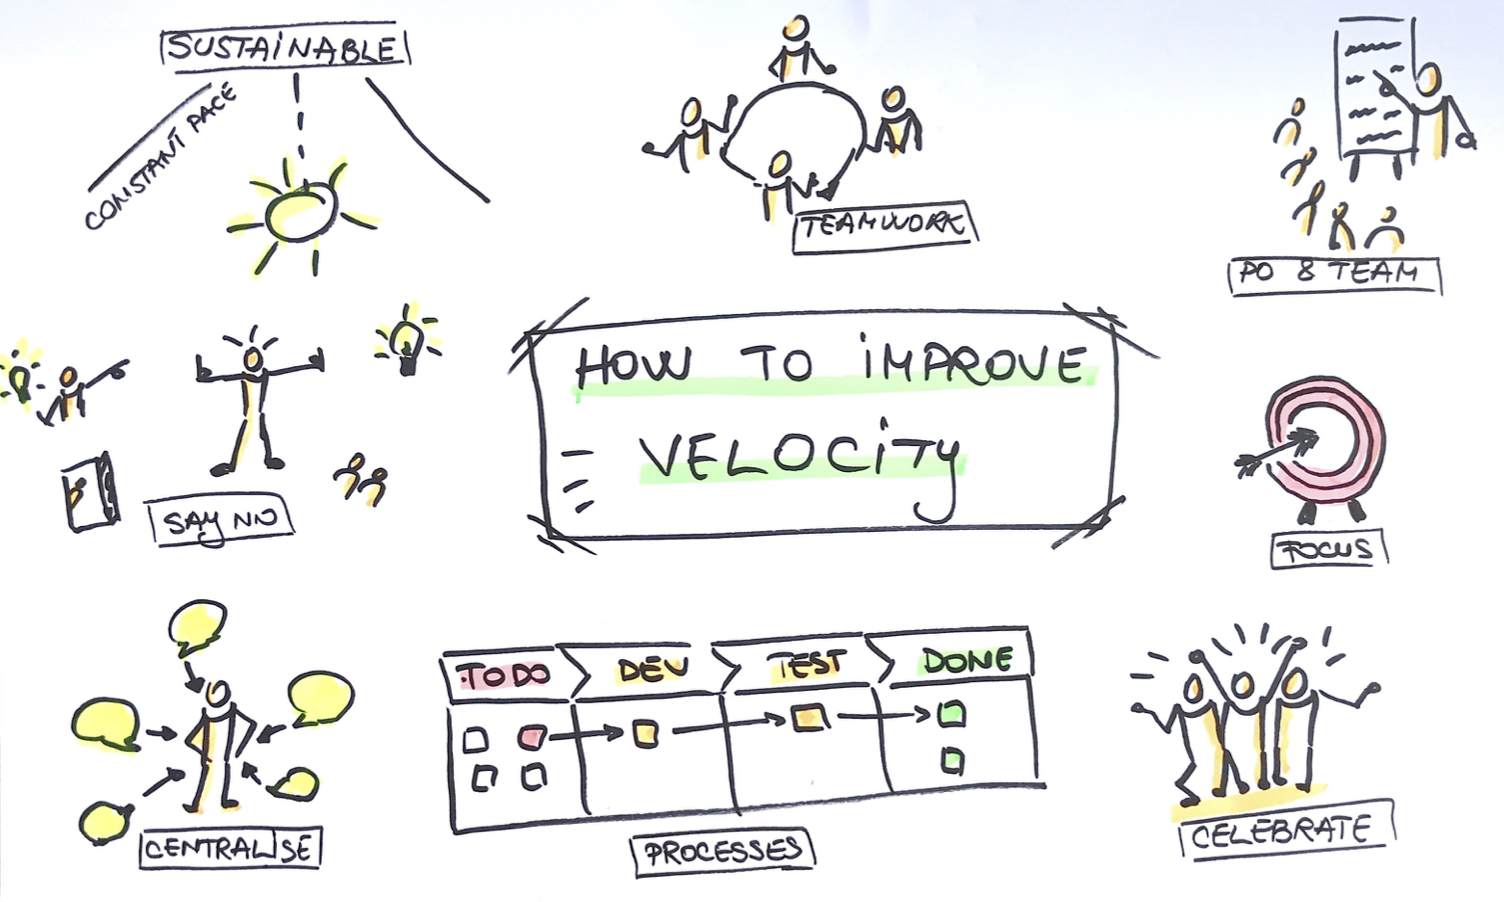 SUSTAINABLE
CONSTANT PACE
TEAMWORK
PO & TEAM
HOW TO IMPROVE
VELOCITY
SAY NO
FOCUS
TODO
DEV
TEST
DONE
CENTRALISE
PROCESSES
CELEBRATE